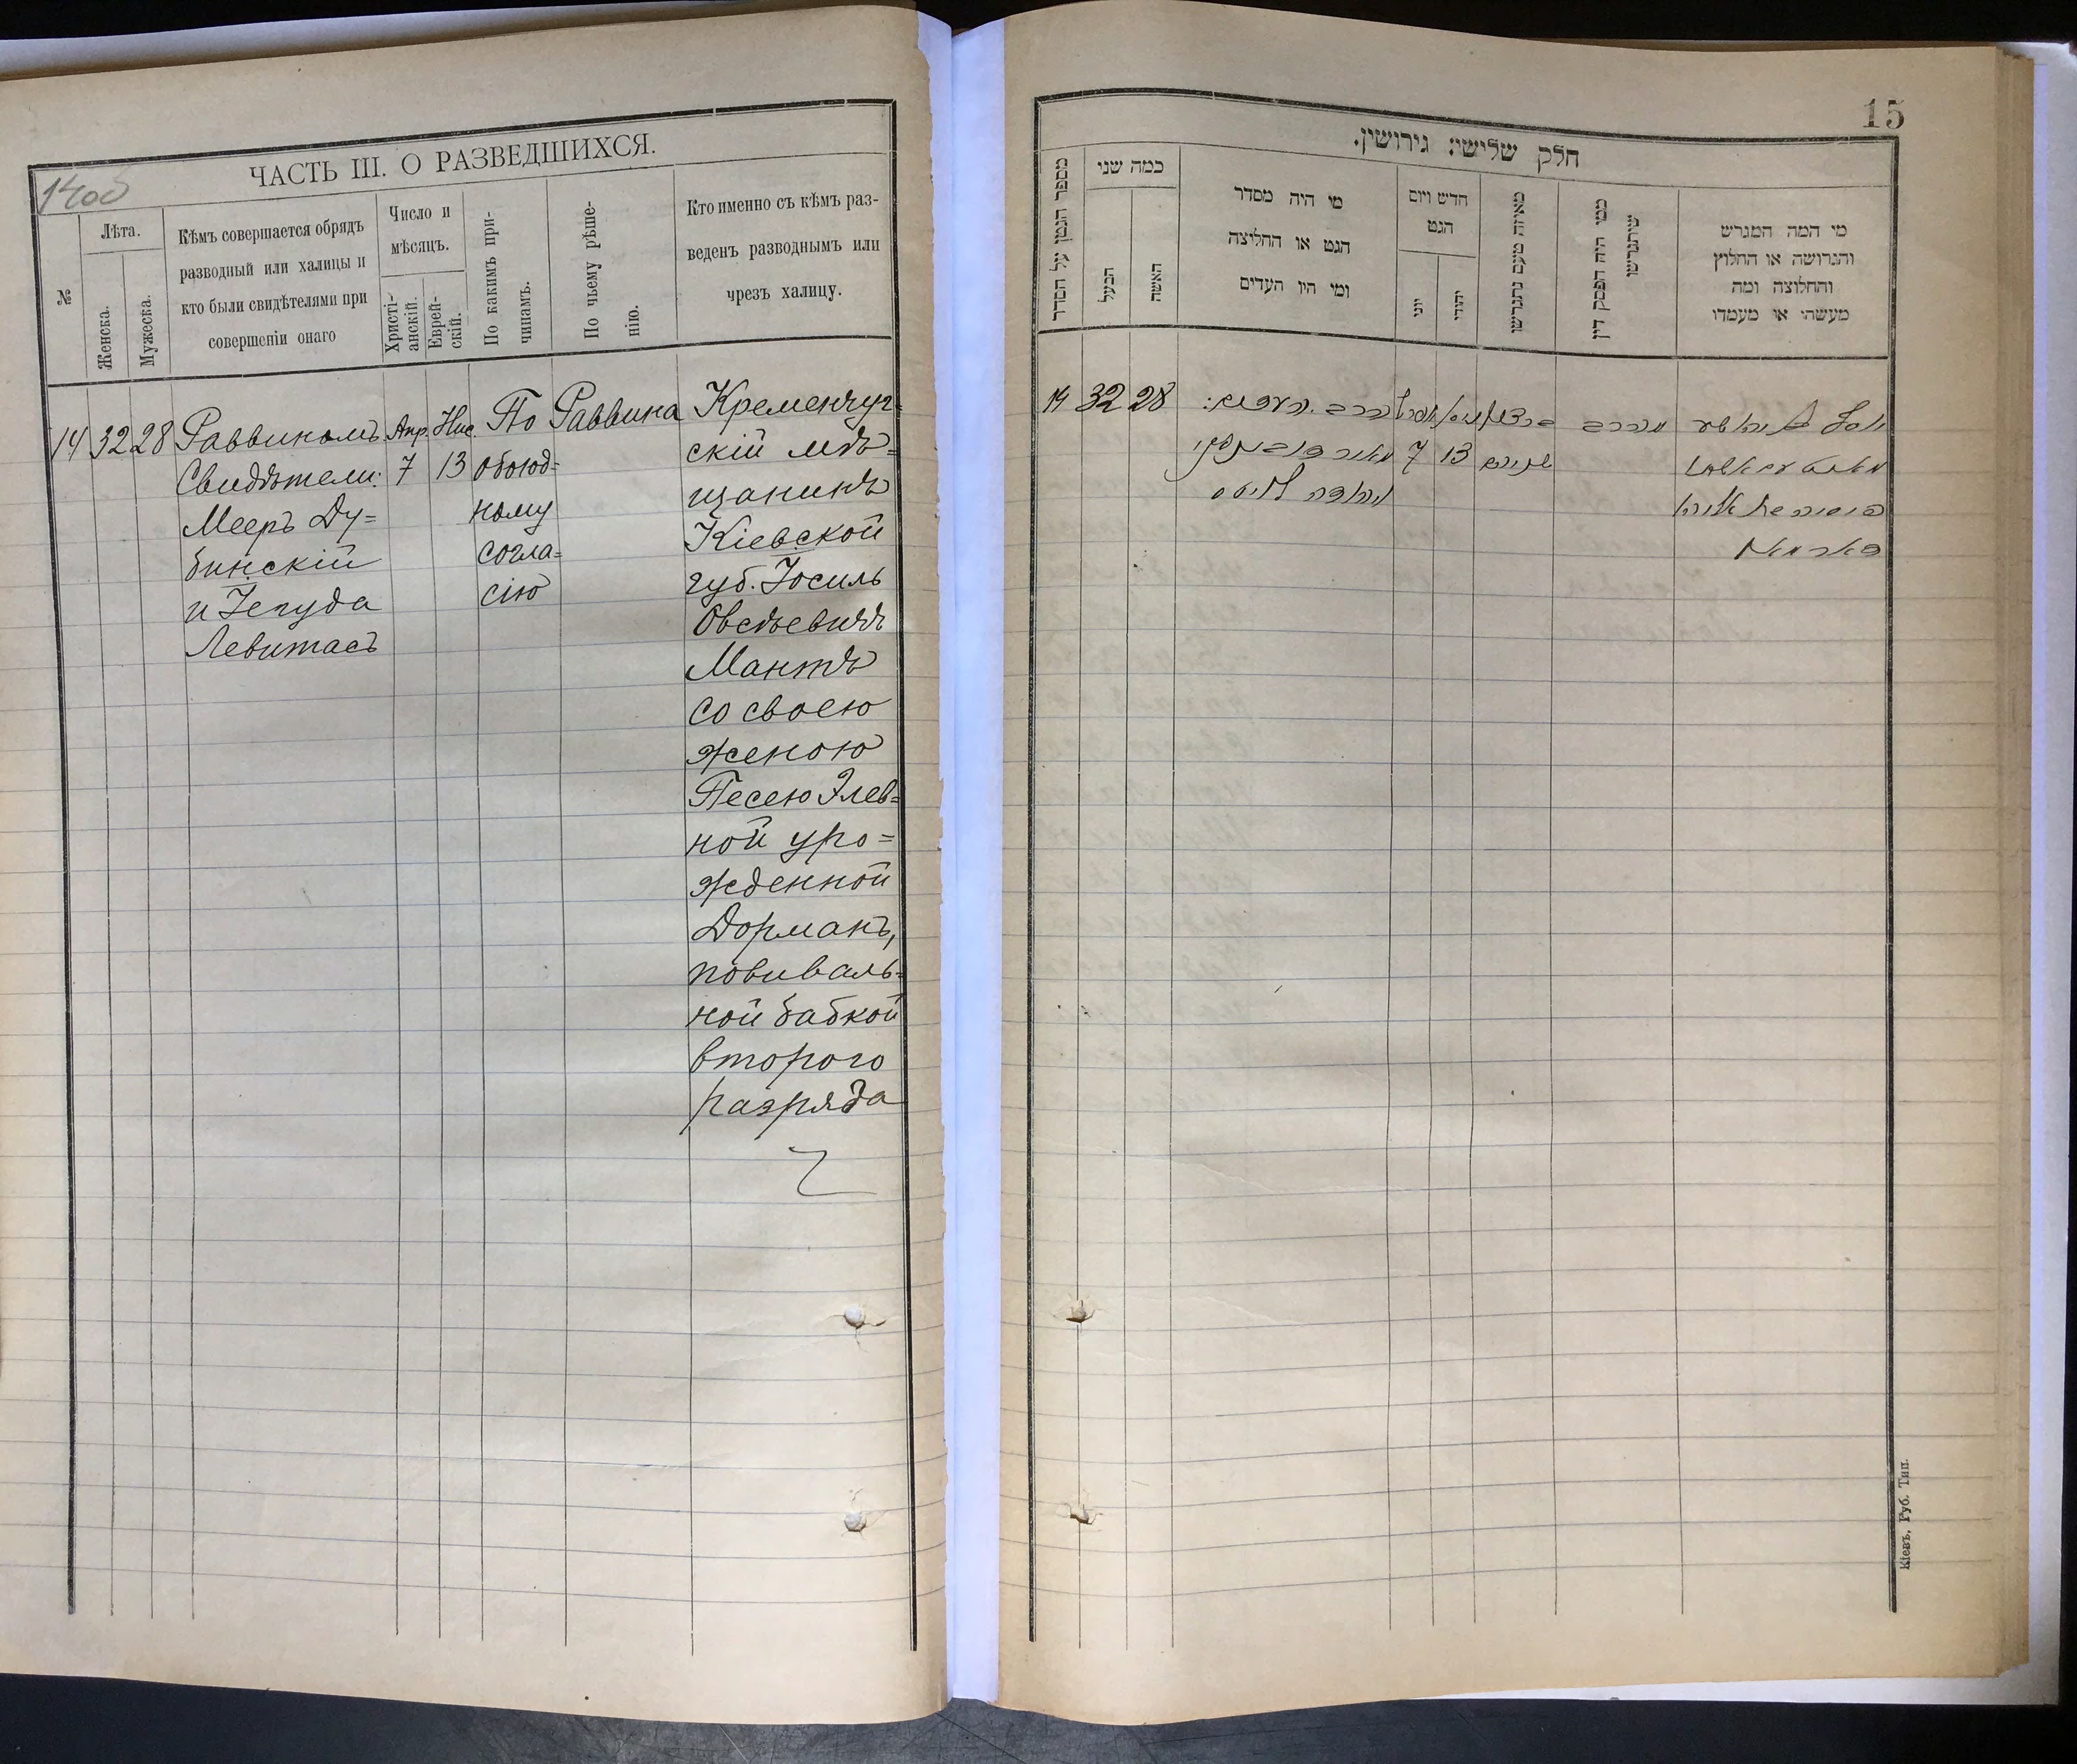 ЧАСТЬ III. О РАЗВЕДШИХСЯ.
№
Лѣта.
Женска.
Мужеска.
Кѣмъ совершается обрядъ
разводный или халицы и
кто были свидѣтелями при
совершеніи онаго
Число и
мѣсяцъ.
Христі-
анскій.
Еврей-
скій.
По какимъ при-
чинамъ.
По чьему рѣше-
нію.
Кто именно съ кѣмъ раз-
веденъ разводнымъ или
чрезъ халицу.
14
32
28
Раввиномъ.
Свидѣтели:
Мееръ Ду=
бинскій
и Іегуда
Левитасъ
Апр.
7
Нис.
13
По
обоюд=
ному
согла=
сію
Раввина
Кременчуг=
скій мѣ=
щанинъ
Кіевской
губ. Іосиль
Овсѣевичъ
Мантъ
со своею
женою
Песею Элев=
ной уро=
жденной
Дорманъ,
повиваль=
ной бабкой
второго
разряда
15
חלק שלישי: גירושין.
מספר הגטן על הסדר
כמה שני
הבעל
האשה
מי היה מסדר
הגט או החליצה
ומי היו העדים
חדש ויום
הגט
יוני
יהודי
מאיזה טעם נתגרשו
ממי היה הפסק דין
שיתגרשו
מי המה המגרש
והגרושה או החלוץ
והחלוצה ומה
מעשהו או מעמדו
14
32
28
7
13
מהרב
Кіевъ, Руб. Тип.